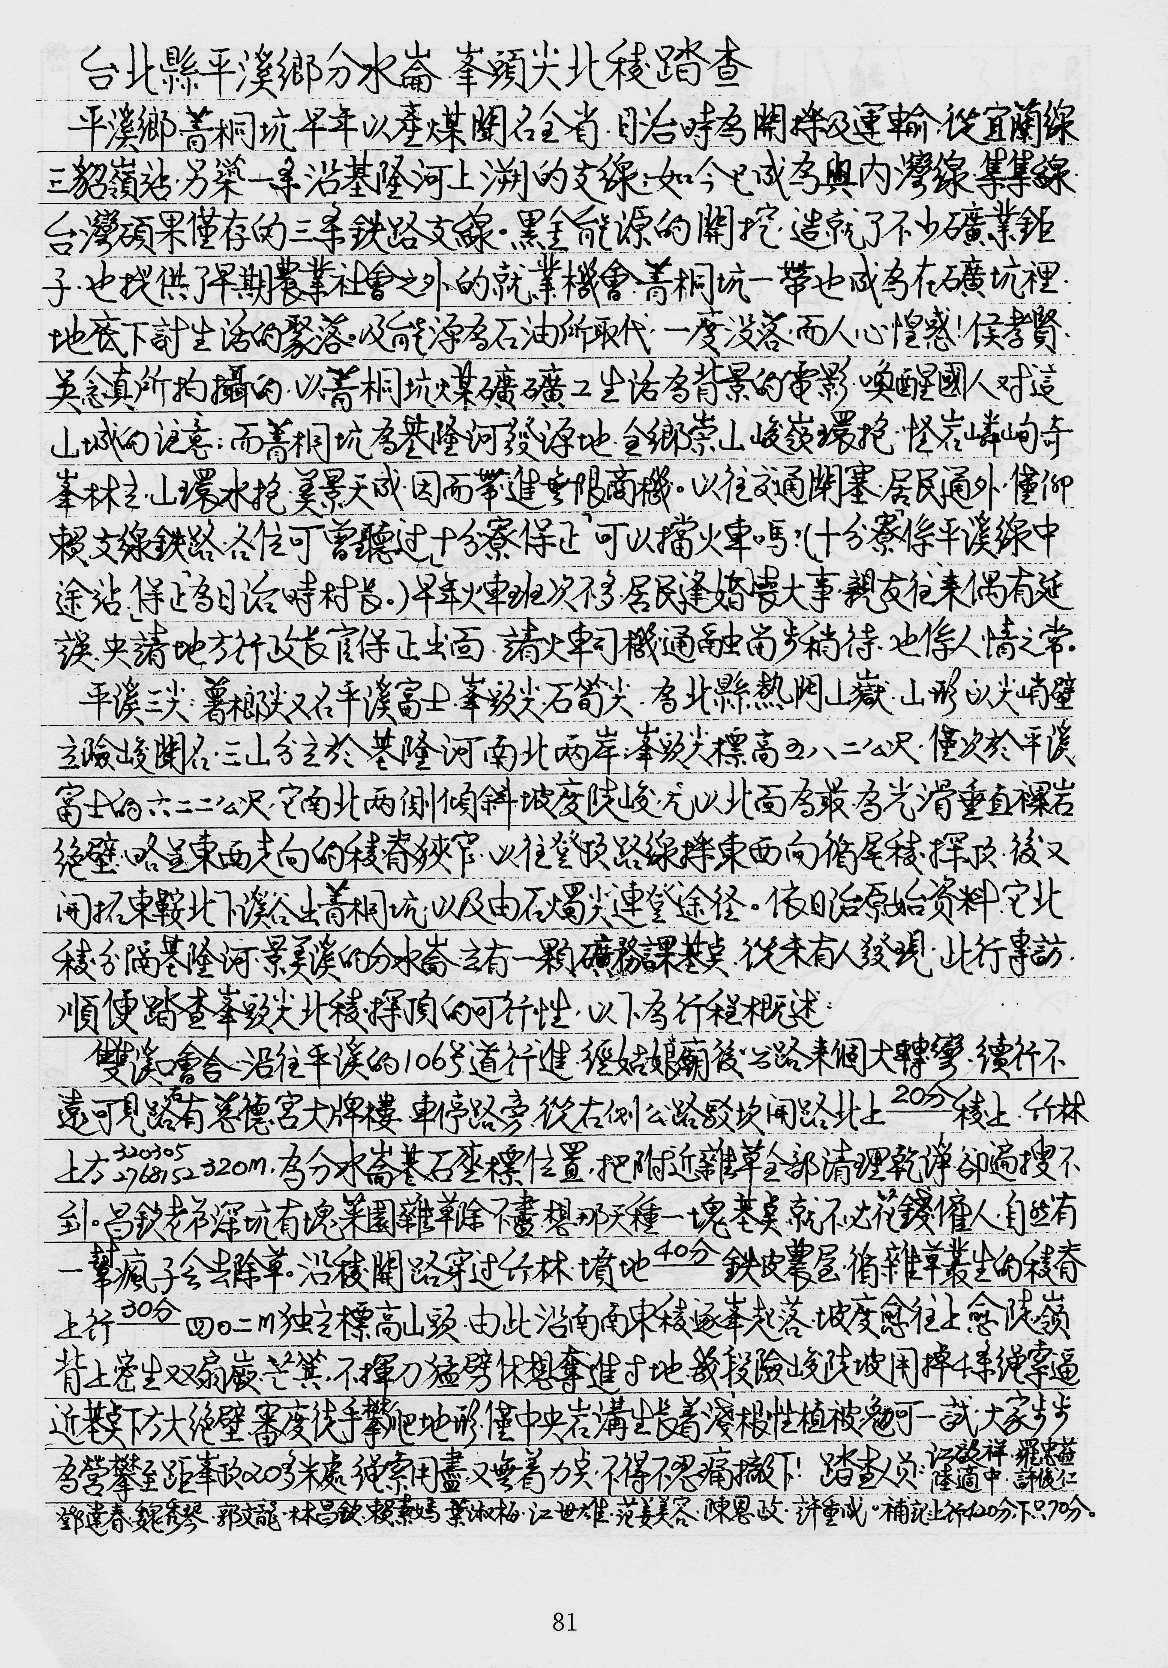 台北縣平溪鄉分水崙.峯頭尖北稜踏查
平溪鄉菁桐坑.早年以產煤聞名全省.日治時為開採及運輸.從宜蘭線
三貂嶺站.另築一条沿基隆河上溯的支線;如今已成為與內灣線.集集線
台灣碩果僅存的三条鉄路支線。黑金能源的開挖.造就了不少礦業鉅
子.也提供了早期農業社會之外的就業機會.菁桐坑一帶也成為在礦坑裡.
地底下討生活的聚落。及能源為石油所取代.一度没落.而人心惶惑!侯孝賢.
吳念真所拍攝的.以菁桐坑煤礦礦工生活為背景的電影.喚醒國人对這
山城的注意;而菁桐坑為基隆河發源地.全鄉崇山峻嶺環抱.怪岩嶙峋奇
峯林立.山環水抱.美景天成.因而帶進無限商機。以往交通閉塞.居民通外.僅仰
賴支線鉄路.各位可曾聽过「十分寮保正」可以擋火車嗎?(「十分寮」係平溪線中
途站.「保正」為日治時村長。)早年火車班次不多.居民逢婚喪大事.親友往来偶有延
誤.央請地方行政長官保正出面.請火車司機通融留步稍待.也係人情之常。
平溪三尖:薯榔尖又名平溪富士.峯頭尖.石筍尖.為北縣熱門山嶽.山形以尖峭壁
立險峻聞名.三山分立於基隆河南北兩岸.峯頭尖標高五八二公尺.僅次於平溪
富士的六二二公尺.它南北兩側傾斜坡度陡峻.尤以北面為最為光滑垂直裸岩
绝壁.略呈東西走向的稜脊狹窄.以往登頂路線採東西向循尾稜探頂.後又
開拓東鞍北下溪谷出菁桐坑.以及由石燭尖連登途径。依日治原始資料.它北
稜分隔基隆河.景美溪的分水崙.立有一顆礦務課基点.從未有人發現.此行專訪.
順便踏查峯頭尖北稜探頂的可行性.以下為行程概述:
雙溪口會合.沿往平溪的106号道行進.經姑娘廟後.公路来個大轉彎.續行不
遠可見路右有慈德宮大牌樓.車停路旁.從右側公路駁坎開路北上 20分 稜上.竹林
上方 320305 2768152 320m.為分水崙基石座標位置.把附近雜草全部清理乾淨.卻遍搜不
到。昌鉄老弟深坑有塊菜園雜草除不盡.想那天種一塊基点.就不必花錢僱人.自然有
一幫瘋子会去除草。沿稜開路穿过竹林.墳地 40分 鉄皮農屋.循雜草叢生的稜脊
上行 30分 四〇二M独立標高山頭.由此沿南南東稜逐峯起落.坡度愈往上愈陡.嶺
背上密生双扇蕨.芒萁.不揮刀猛劈休想奪進寸地.幾段險峻陡坡用掉4条繩索逼
近基点下方大绝壁.審度徒手攀爬地形.僅中央岩溝生長着淺根性植被勉可一試.大家步步
為營攀至距峯頂20多米處.繩索用盡.又無着力点.不得不忍痛撤下!踏查人員:江啟祥.羅忠益
陸適中.許俊仁
鄧建春.魏秀琴.郭文龍.林昌欽.賴素媽.葉淑梅.江世雄.范姜美容.陳恩政.許重成。補註:上行420分.下只70分。
81